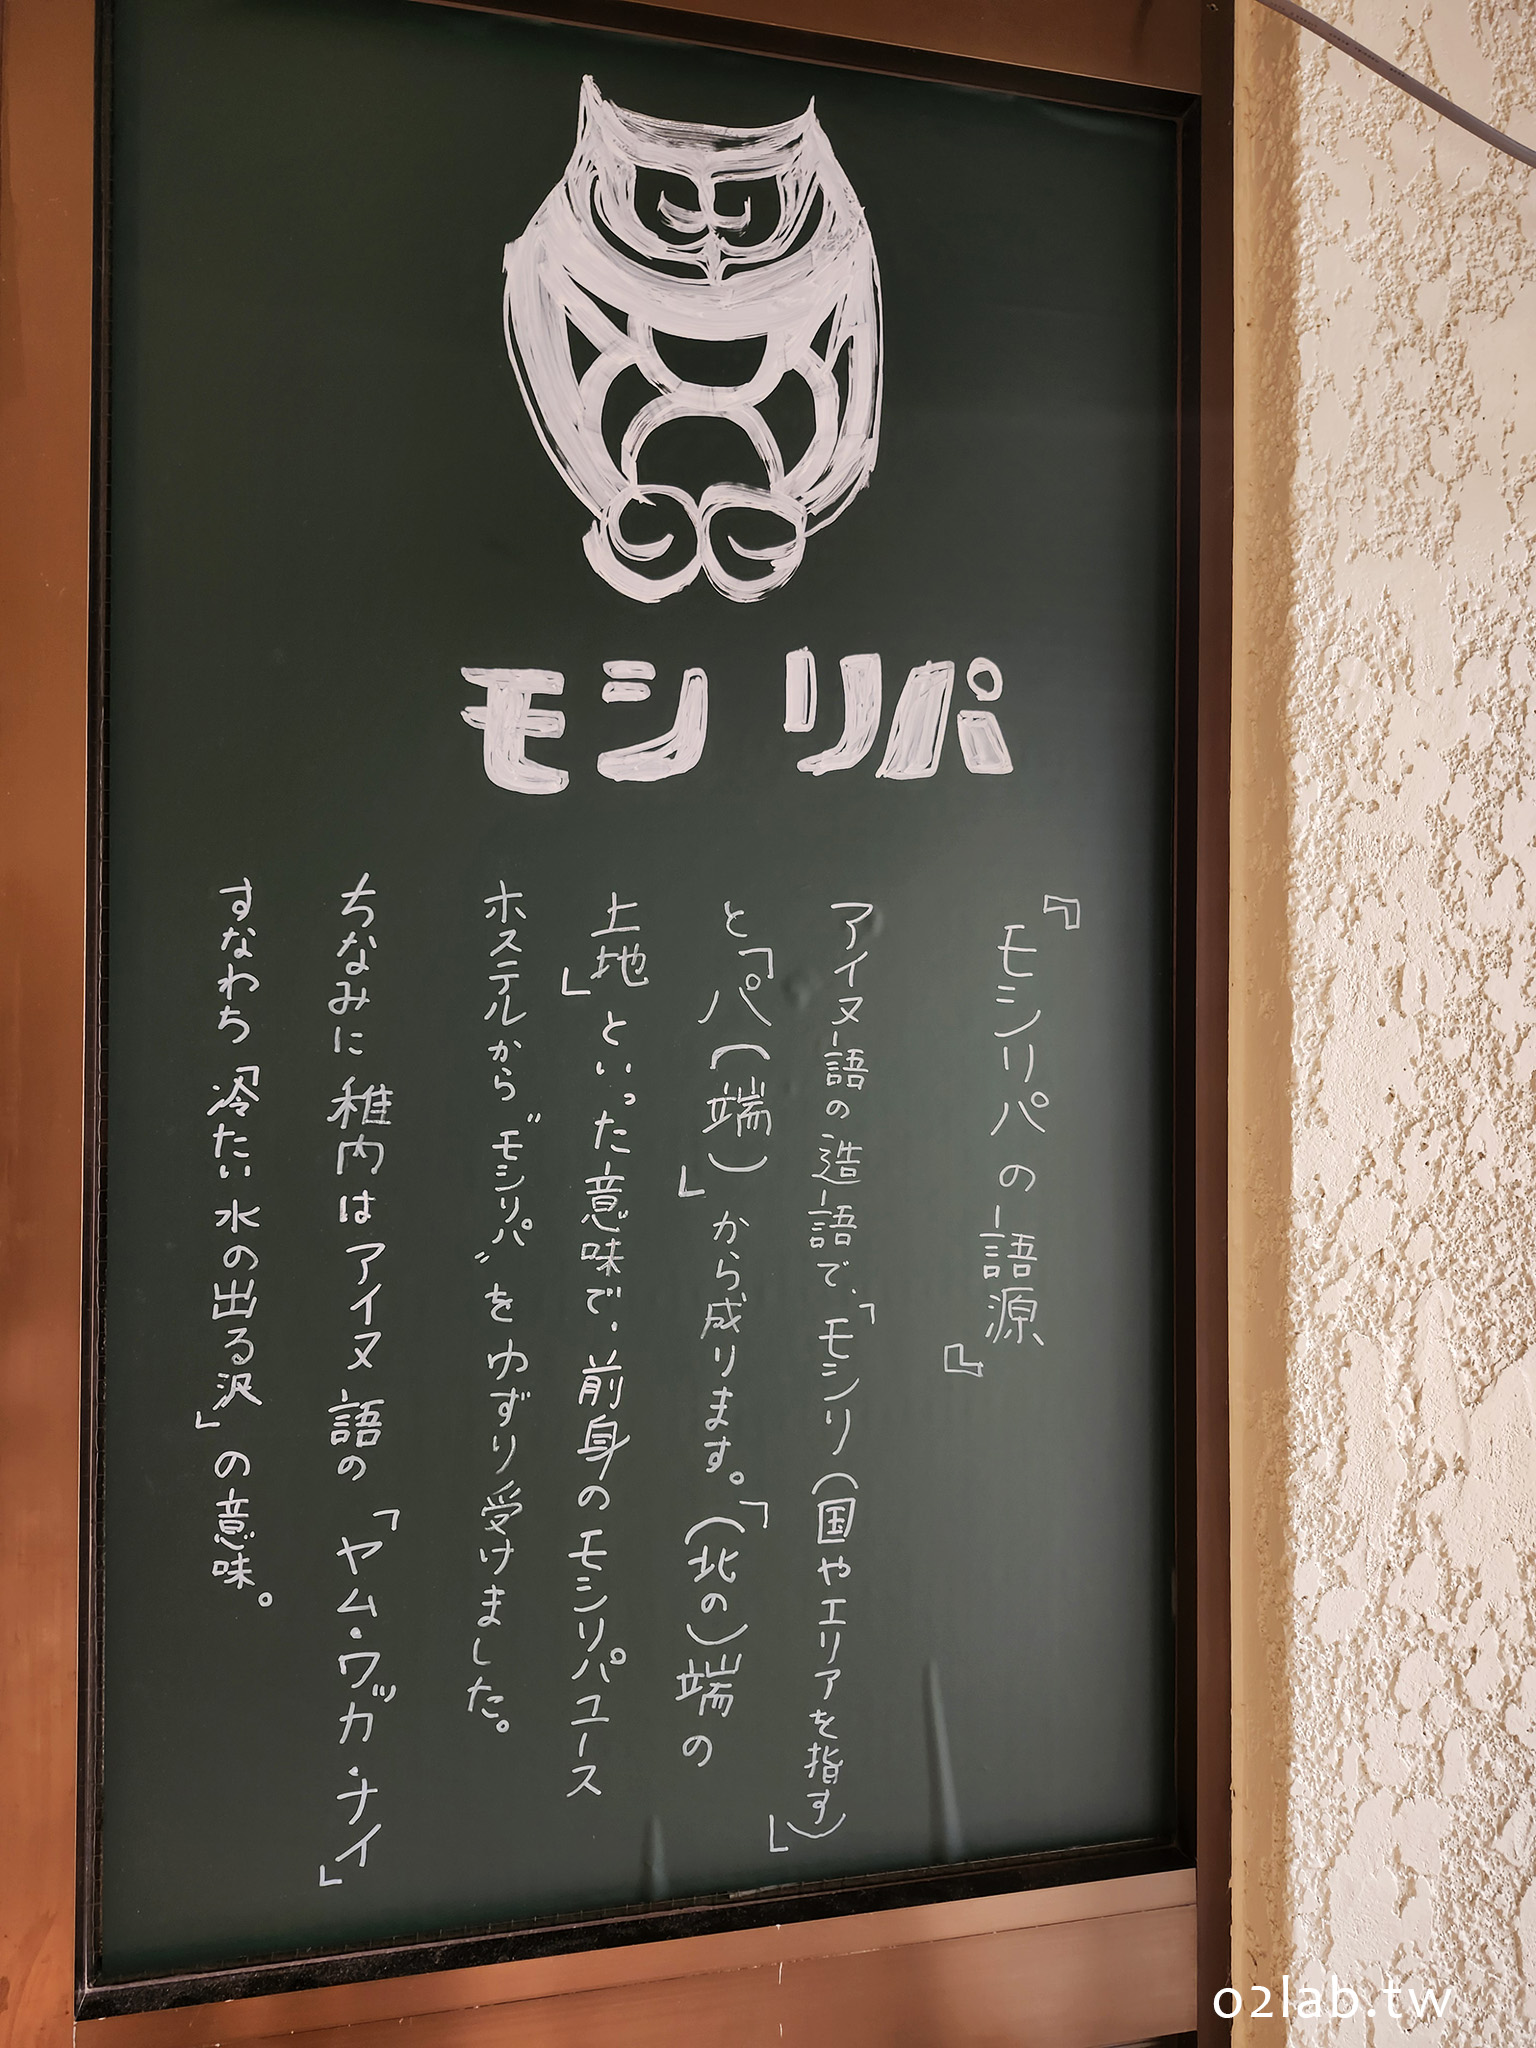 モシリパ
『モシリパの語源』
アイヌ語の造語で、「モシリ(国やエリアを指す)」
と「パ(端)」から成ります。「(北の)端の
上地」といった意味で、前身のモシリパユース
ホステルから"モシリパ"をゆずり受けました。
ちなみに稚内はアイヌ語の「ヤム・ワッカ・ナイ」
すなわち「冷たい水の出る沢」の意味。
o2lab.tw